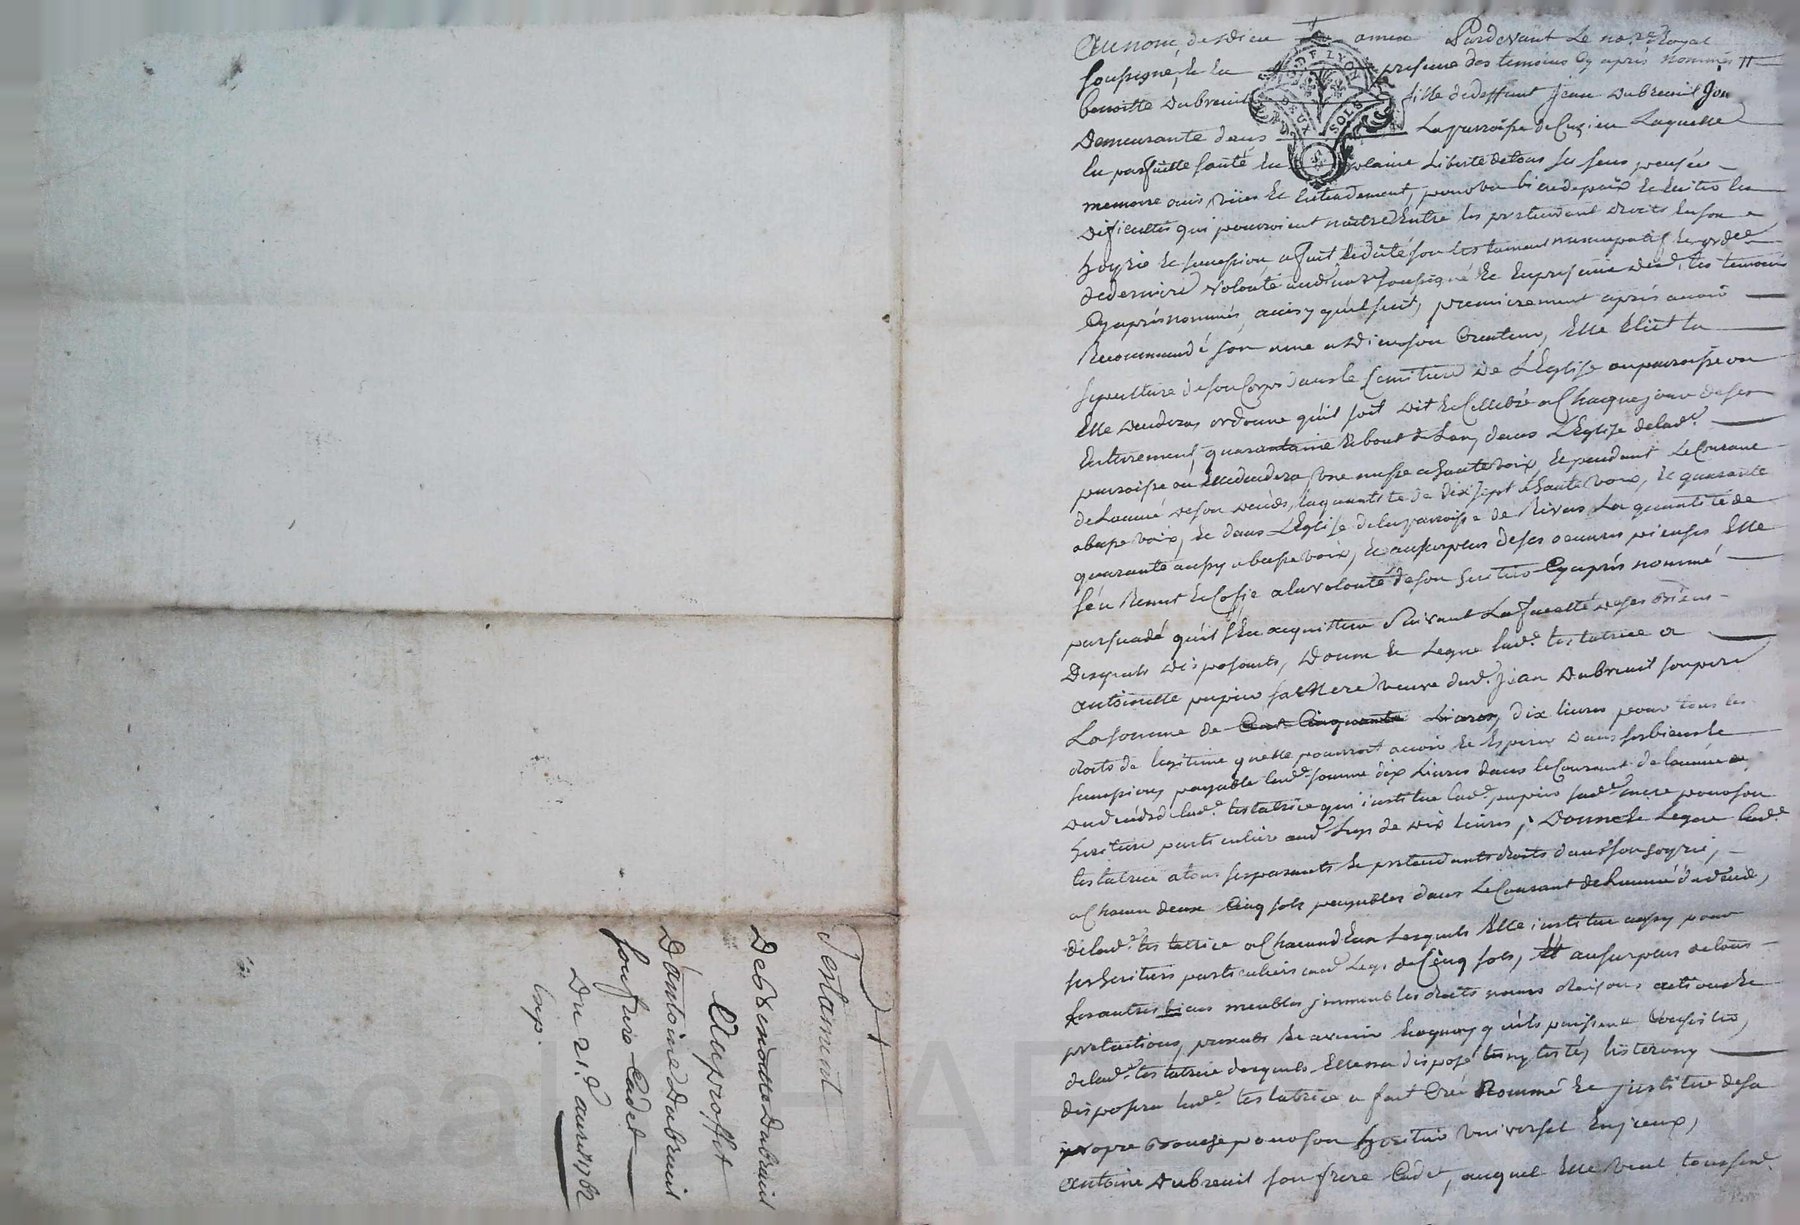 Au nom de Dieu amen Pardevant Le no.re Royal
Soussigné, Et En presence des temoins Cy apres nommés
benoitte Dubreuil fille de deffunt Jean Dubreuil
Demeurante dans La parroisse de Laquelle
En parfaitte santé En plaine Liberté de tous ses sens pensée
memoire ouïs, vüee Et Entendement, pour bien de paix Et Eviter les
dificultés qui pouroient naitre Entre les pretendant droits En son
hoyrie Et succession a fait Et dicté son testament nuncupatif Et ordce
de derniere volonté aud. nore soussigné Et En presence desd. les temoins
Cy apres nommés, ainsy qu'il suit, premierement apres avoir
Recommandé son ame a Dieu son Createur, Elle Elit la
sepulture de son Corps dans le Cemitiere de L'Eglise ou parroisse ou
Elle decedera, ordonne qu'il soit dit Et Cellebré a Chaque jour de ses
Enterrement, quarantaine Et bout de L'an, dans L'Eglise de lad.
parroisse ou Elle decedera, une messe a haute voix, Et pendant Le Courant
de L'année de son deces, la quantité de dix sept a haute voix, Et quarante
a basse voix, Et dans L'Eglise de la parroisse de Rivas La quantité de
quarante aussy a basse voix, Et au surplus de ses oeuvres pieuses Elle
s'En Remet Et Confie a la volonté de son heritier Cy apres nommé
persuadé qu'il s'En acquittera Suivant La faculté de ses biens
Desquels disposant, Donne Et Legue lad. testatrice a
antoinette pupier sa Mere veuve dud. Jean Dubreuil son pere
La somme de Cent Cinquante Livres, dix livres pour tous les
droits de legitime qu'elle pourroit avoir Et Esperer dans ses biens Et
succession, payable lad. somme dix Livres dans le Courant de l'année
du deces de lad. testatrice qui institue lad. pupier sad. mere pour son
heritiere particuliere aud. Legs de dix livres, Donne Et Legue lad.
testatrice a tous ses parants Et pretendants droits dans son hoyrie,
a Chacun deux Cinq sols payables dans Le Courant de L'année du deces,
de lad. testatrice a Chacun d'Eux Lesquels Elle institue aussy pour
ses heritiers particuliers aud. Legs de Cinq sols, Et au surplus de tous
ses autres biens meubles, immeubles droits noms Raisons actions Et
pretentions, presents Et avenir En quoy qu'ils puissent Consister,
de lad. testatrice desquels Elle n'a disposé
disposera lad. testatrice a fait Creé Nommé Et institue de sa
propre bouche pour son heritier Universel En jceux,
antoine Dubreuil son frere Cadet, auquel Elle Veut
Testament
De benoitte Dubreuil
Au proffit
D'antoine Dubreuil
son frere Cadet
Du 21.e avril 1762
Exp.
G. DE LYON
DEUX SOLS